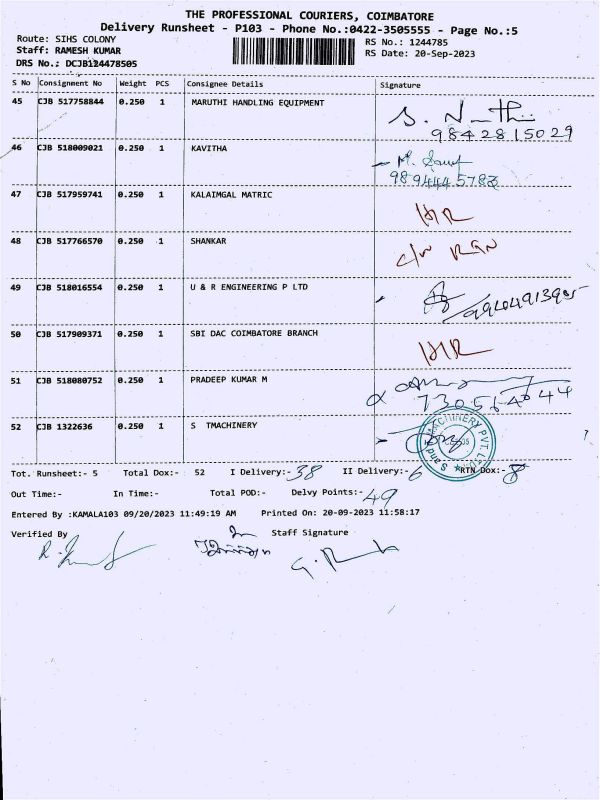 THE PROFESSIONAL COURIERS, COIMBATORE
Delivery Runsheet - P103 - Phone No.:0422-3505555 - Page No.:5
Route: SIHS COLONY
RS No.: 1244785
Staff: RAMESH KUMAR
RS Date: 20-Sep-2023
DRS No.: DCJB124478505
S No Consignment No Weight PCS Consignee Details Signature
45 CJB 517758844 0.250 1 MARUTHI HANDLING EQUIPMENT
9842815029
46 CJB 518009021 0.250 1 KAVITHA
9894445783
47 CJB 517959741 0.250 1 KALAIMGAL MATRIC
48 CJB 517766570 0.250 1 SHANKAR
49 CJB 518016554 0.250 1 U & R ENGINEERING P LTD
50 CJB 517909371 0.250 1 SBI DAC COIMBATORE BRANCH
51 CJB 518080752 0.250 1 PRADEEP KUMAR M
52 CJB 1322636 0.250 1 S TMACHINERY
MACHINERY PVT. LTD.
Tot. Runsheet:- 5 Total Dox:- 52 I Delivery:- 38 II Delivery:- 6 RTN Dox:- 8
Out Time:- In Time:- Total POD:- Delvy Points:- 49
Entered By :KAMALA103 09/20/2023 11:49:19 AM Printed On: 20-09-2023 11:58:17
Verified By Staff Signature